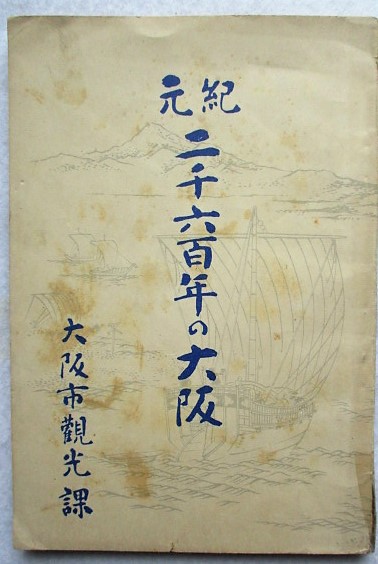 紀元
二千六百年の大阪
大阪市觀光課